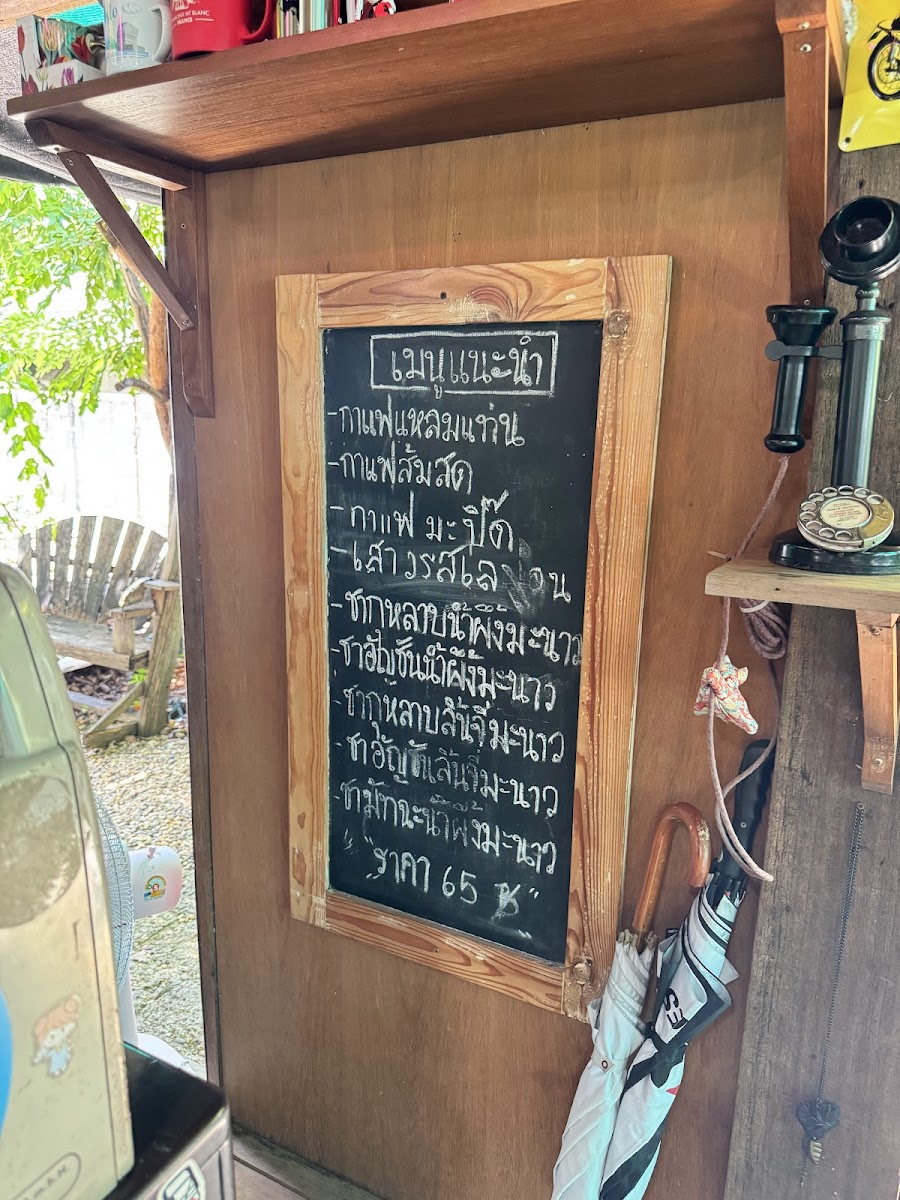 MT BLANC
FRANCE
เมนูแนะนำ
-กาแฟแหลมแท่น
-กาแฟส้มสด
-กาแฟ มะปี๊ด
-เสาวรส
-ชากุหลาบน้ำผึ้งมะนาว
-ชาอัญชันน้ำผึ้งมะนาว
-ชากุหลาบลิ้นจี่มะนาว
-ชาอัญชันลิ้นจี่มะนาว
-ชามัทฉะน้ำผึ้งมะนาว
"ราคา 65 ฿"